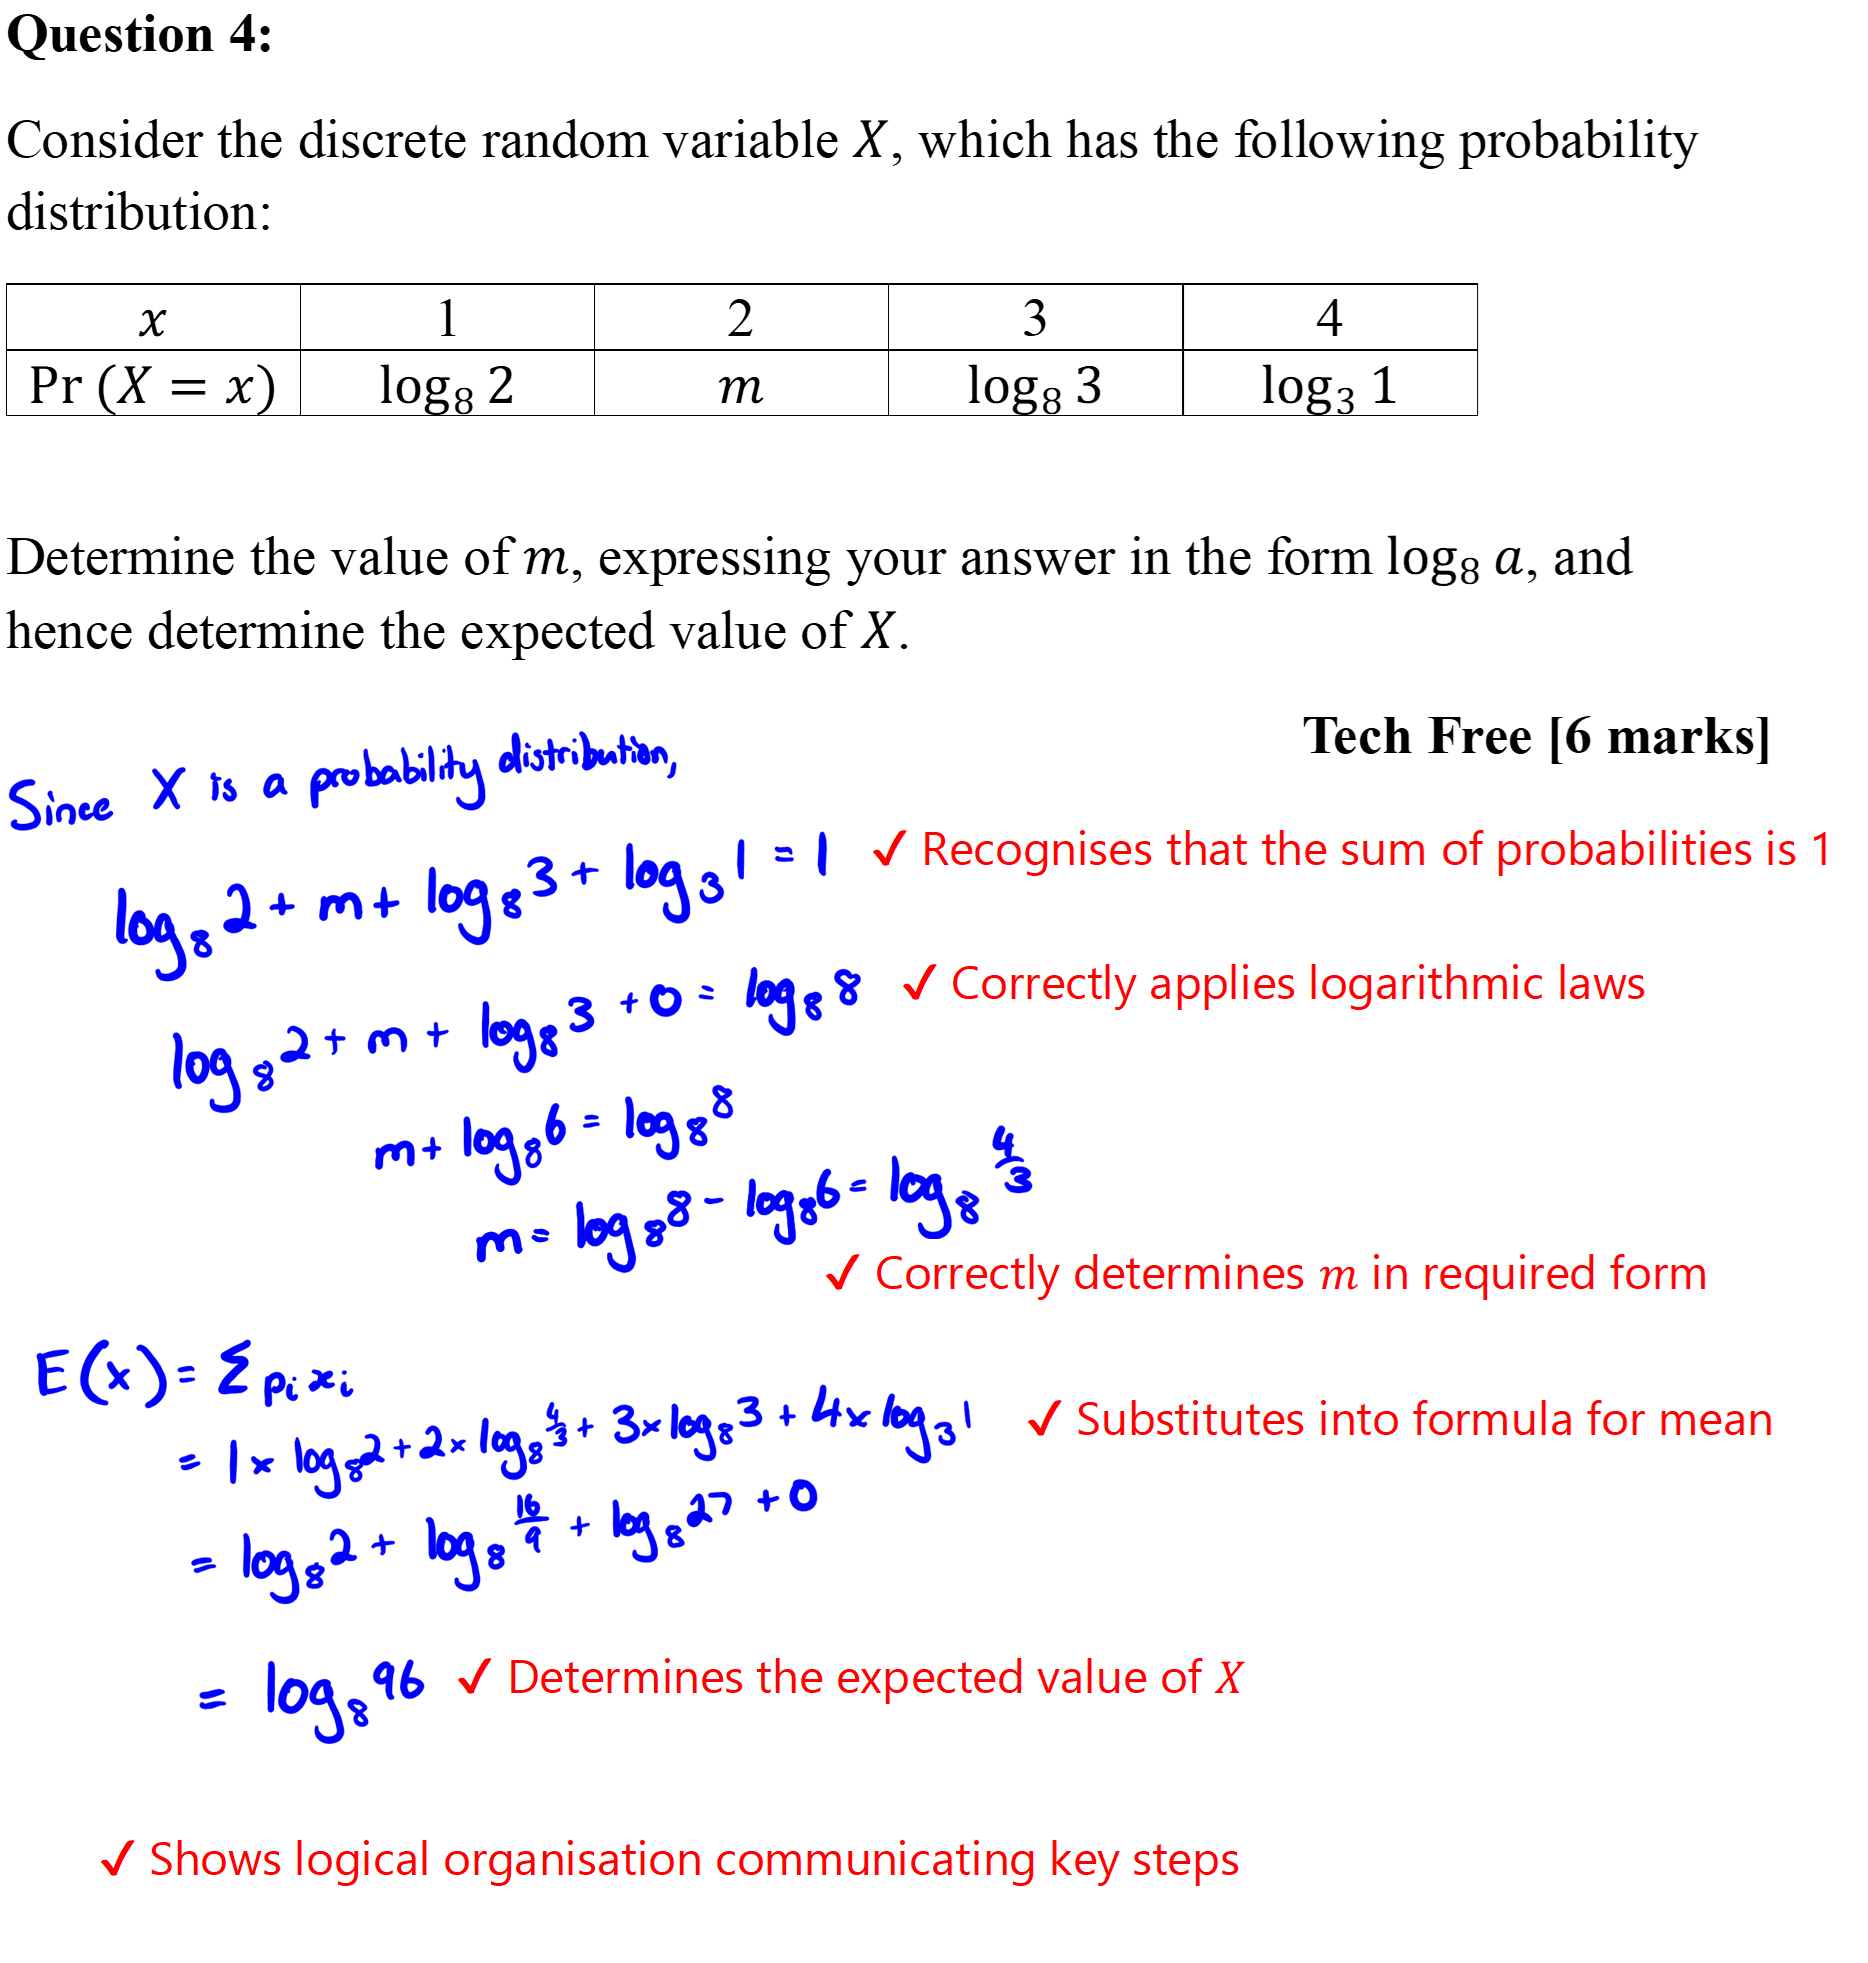 Question 4:
Consider the discrete random variable X, which has the following probability
distribution:
x 1 2 3 4
Pr (X = x) log₈ 2 m log₈ 3 log₃ 1
Determine the value of m, expressing your answer in the form log₈ a, and
hence determine the expected value of X.
Tech Free [6 marks]
Since X is a probability distribution,
log₈ 2 + m + log₈ 3 + log₃ 1 = 1 ✓ Recognises that the sum of probabilities is 1
log₈ 2 + m + log₈ 3 + 0 = log₈ 8 ✓ Correctly applies logarithmic laws
m + log₈ 6 = log₈ 8
m = log₈ 8 - log₈ 6 = log₈ 4/3
✓ Correctly determines m in required form
E(x) = Σ pᵢ xᵢ
= 1 × log₈ 2 + 2 × log₈ 4/3 + 3 × log₈ 3 + 4 × log₃ 1 ✓ Substitutes into formula for mean
= log₈ 2 + log₈ 16/9 + log₈ 27 + 0
= log₈ 96 ✓ Determines the expected value of X
✓ Shows logical organisation communicating key steps